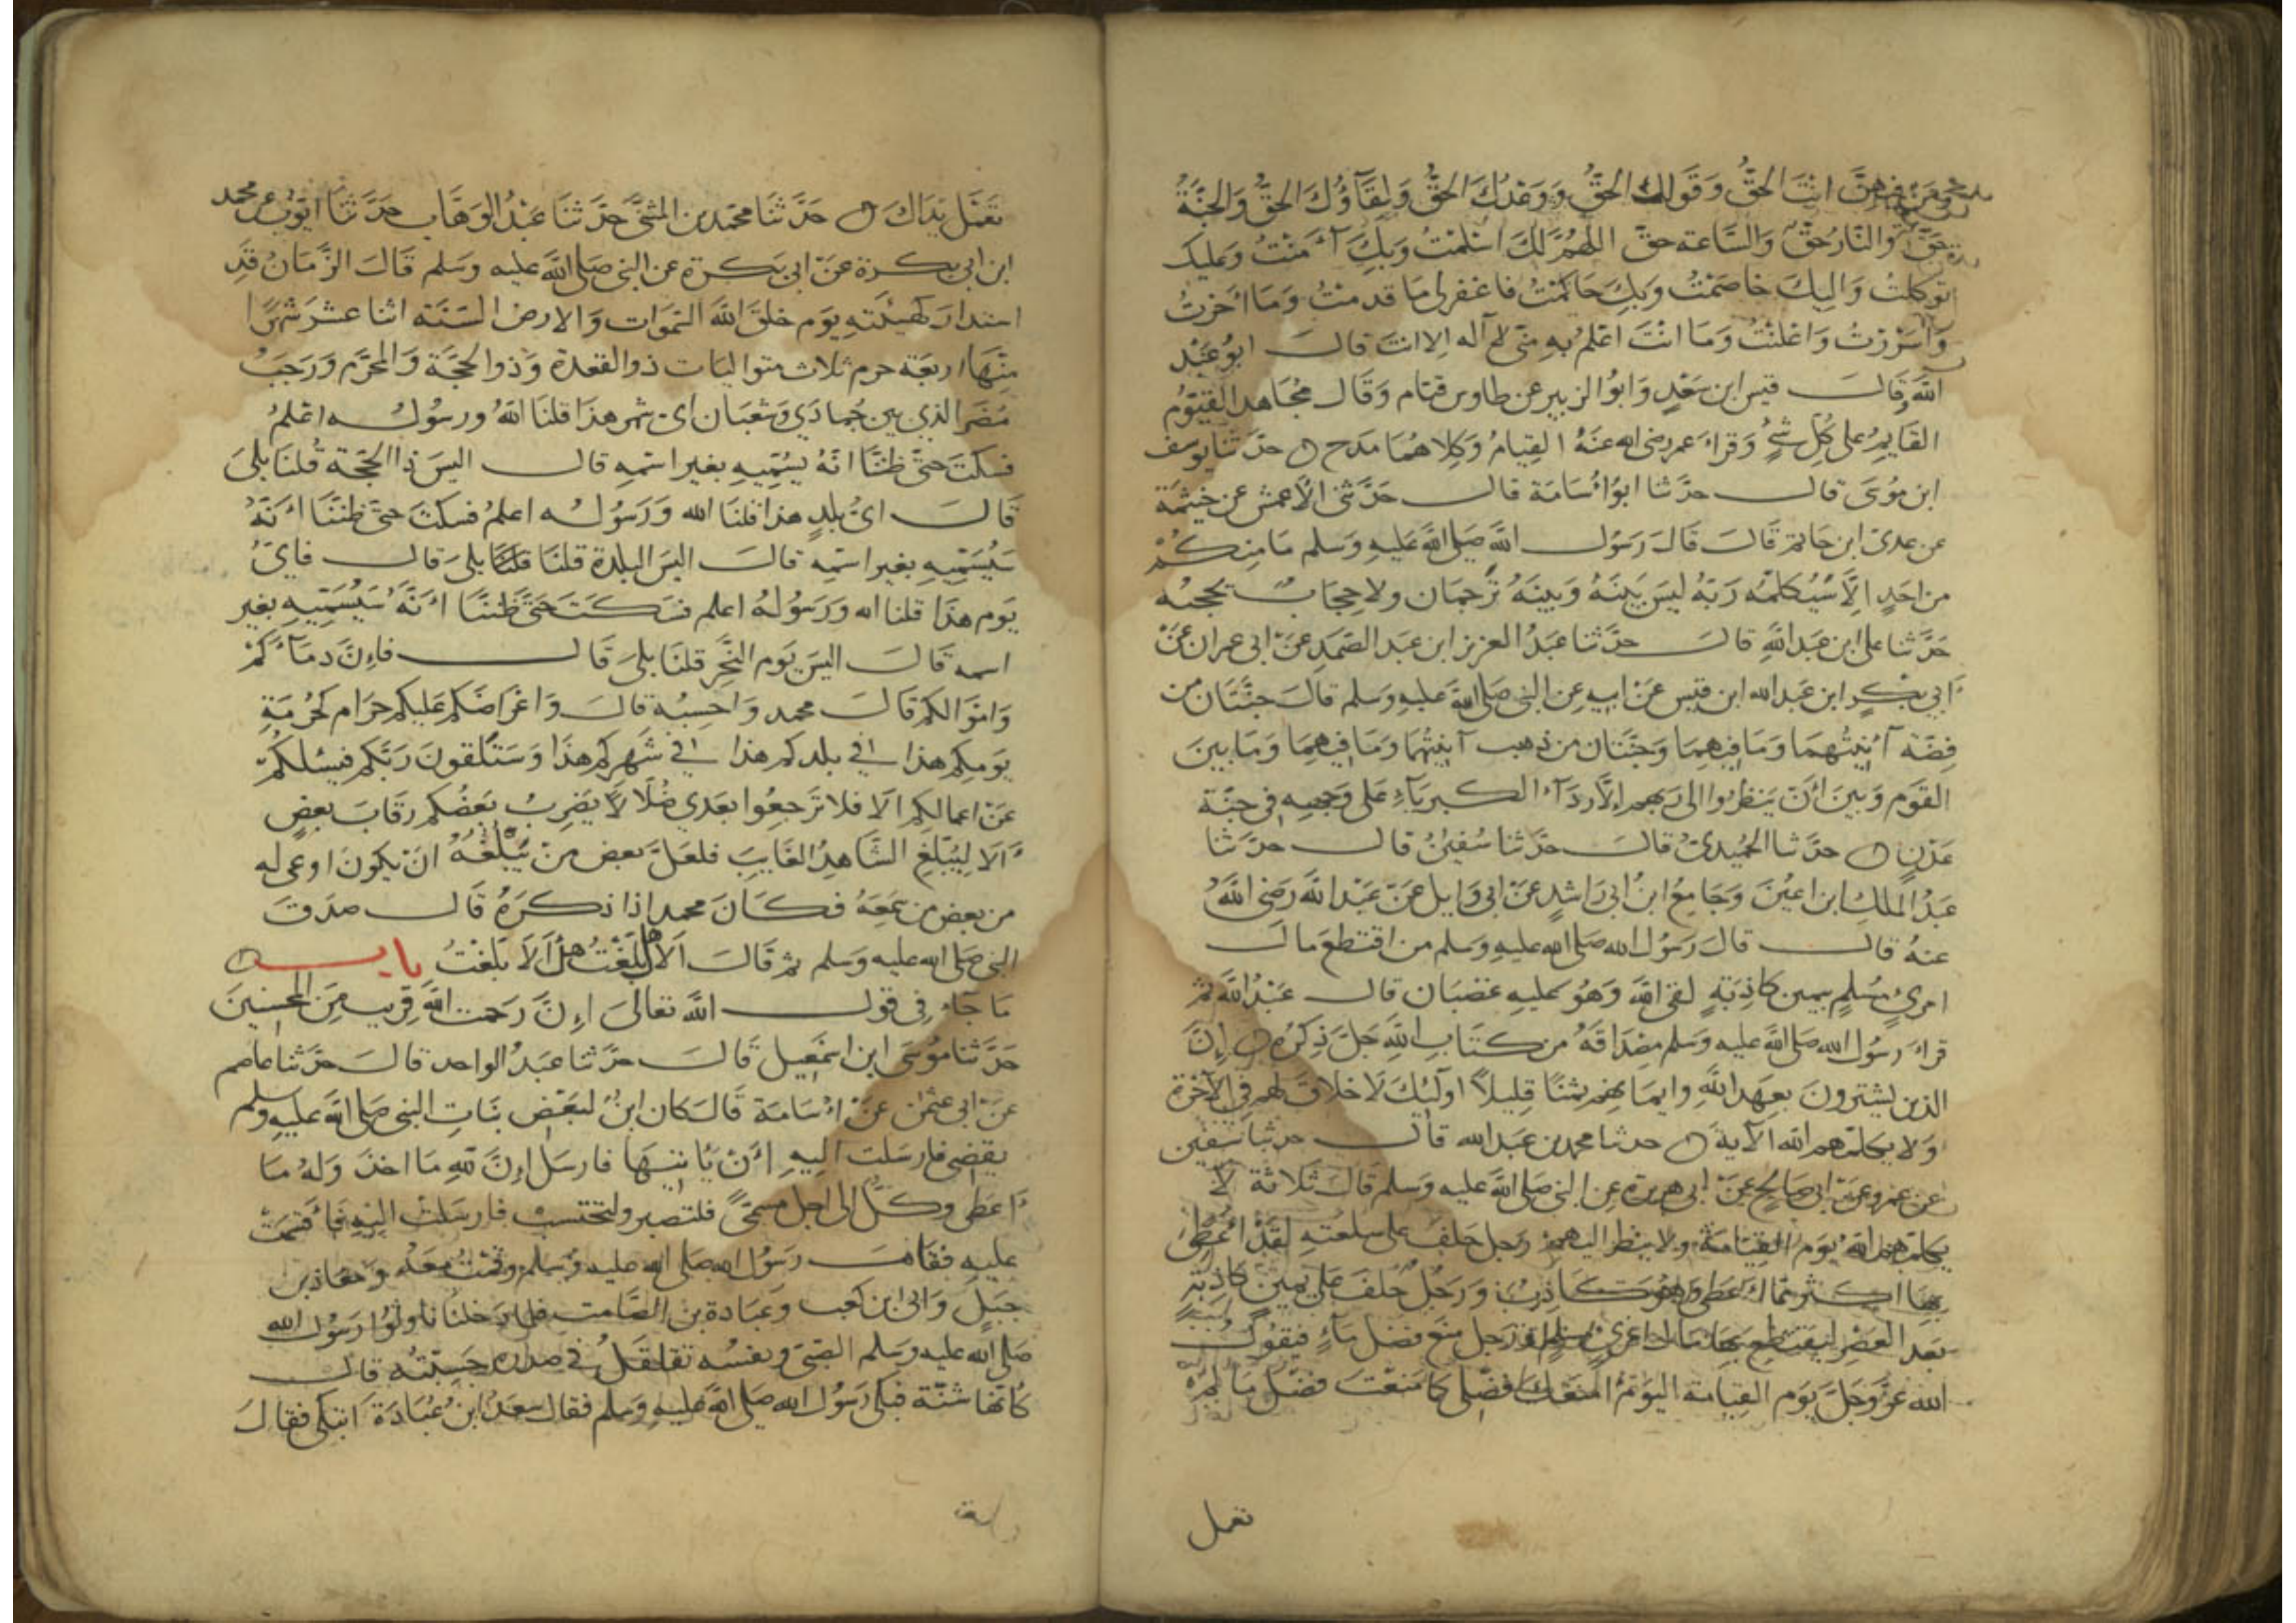 ومن فيهن انت الحق وقولك الحق ووعدك الحق ولقاؤك الحق والجنة
حق والنار حق والساعة حق اللهم لك اسلمت وبك آمنت وعليك
توكلت واليك خاصمت وبك حاكمت فاغفرلى ما قدمت وما اخرت
واسررت واعلنت وما انت اعلم به منى لا اله الا انت قال ابو عبد
الله وقال قيس ابن سعد وابو الزبير عن طاوس قيام وقال مجاهد القيوم
القايم على كل شئ وقراء عمر رضى الله عنه القيام وكلاهما مدح حدثنا يوسف
ابن موسى قال حدثنا ابو اسامة قال حدثنى الاعمش عن خيثمة
عن عدى ابن حاتم قال قال رسول الله صلى الله عليه وسلم ما منكم
من احد الا سيكلمه ربه ليس بينه وبينه ترجمان ولا حجاب يحجبه
حدثنا على ابن عبد الله قال حدثنا عبد العزيز ابن عبد الصمد عن ابى عمران عن
ابي بكر ابن عبد الله ابن قيس عن ابيه عن النبى صلى الله عليه وسلم قال جنتان من
فضة آنيتهما وما فيهما وجنتان من ذهب آنيتهما وما فيهما وما بين
القوم وبين ان ينظروا الى ربهم الا رداء الكبرياء على وجهه فى جنة
عدن حدثنا الحميدى قال حدثنا سفين قال حدثنا
عبد الملك ابن اعين وجامع ابن ابى راشد عن ابى وايل عن عبد الله رضى الله
عنه قال قال رسول الله صلى الله عليه وسلم من اقتطع مال
امرئ مسلم بيمين كاذبة لقى الله وهو عليه غضبان قال عبد الله ثم
قراء رسول الله صلى الله عليه وسلم مصداقه من كتاب الله جل ذكره ان
الذين يشترون بعهد الله وايمانهم ثمنا قليلا اولئك لا خلاق لهم فى الآخرة
ولا يكلمهم الله الآية حدثنا محمد بن عبد الله قال حدثنا سفين
عن عمرو عن ابى صالح عن ابى هريرة عن النبى صلى الله عليه وسلم قال ثلاثة لا
يكلمهم الله يوم القيامة ولا ينظر اليهم رجل حلف على سلعته لقد اعطى
بها اكثر مما اعطى وهو كاذب ورجل حلف على يمين كاذبة
بعد العصر ليقتطع بها مال امرئ مسلم ورجل منع فضل ماء فيقول
الله عز وجل يوم القيامة اليوم امنعك فضلى كما منعت فضل ما لم
تعمل
تعمل يداك حدثنا محمد بن المثنى حدثنا عبد الوهاب حدثنا ايوب عن محمد
ابن ابى بكرة عن ابى بكرة عن النبى صلى الله عليه وسلم قال الزمان قد
استدار كهيئته يوم خلق الله السموات والارض السنة اثنا عشر شهرا
منها اربعة حرم ثلاث متواليات ذو القعدة وذوا الحجة والمحرم ورجب
مضر الذي بين جمادي وشعبان اى شهر هذا قلنا الله ورسوله اعلم
فسكت حتى ظننا انه يسميه بغير اسمه قال اليس ذا الحجة قلنا بلى
قال اى بلد هذا قلنا الله ورسوله اعلم فسكت حتى ظننا انه
سيسميه بغير اسمه قال اليس البلدة قلنا قلنا بلى قال فاى
يوم هذا قلنا الله ورسوله اعلم فسكت حتى ظننا انه سيسميه بغير
اسمه قال اليس يوم النحر قلنا بلى قال فان دماءكم
واموالكم قال محمد واحسبه قال واعراضكم عليكم حرام كحرمة
يومكم هذا في بلدكم هذا في شهركم هذا وستلقون ربكم فيسئلكم
عن اعمالكم الا فلا ترجعوا بعدي ضلالا يضرب بعضكم رقاب بعض
الا ليبلغ الشاهد الغايب فلعل بعض من يبلغه ان يكون اوعى له
من بعض من سمعه فكان محمد اذا ذكره قال صدق
النبى صلى الله عليه وسلم ثم قال الا هل بلغت هل الا بلغت باب
ما جاء فى قول الله تعالى ان رحمت الله قريب من المحسنين
حدثنا موسى ابن اسمعيل قال حدثنا عبد الواحد قال حدثنا عاصم
عن ابى عثمن عن اسامة قال كان ابن لبعض بنات النبى صلى الله عليه وسلم
يقضى فارسلت اليه ان ياتيها فارسل ان لله ما اخذ وله ما
اعطى وكل الى اجل مسمى فلتصبر ولتحتسب فارسلت اليه فاقسمت
عليه فقام رسول الله صلى الله عليه وسلم وقمت معه ومعاذ بن
جبل وابى ابن كعب وعبادة بن الصامت فلما دخلنا ناولوا رسول الله
صلى الله عليه وسلم الصبى ونفسه تقلقل في صدره حسبته قال
كانها شنة فبكى رسول الله صلى الله عليه وسلم فقال سعد ابن عبادة اتبكى فقال